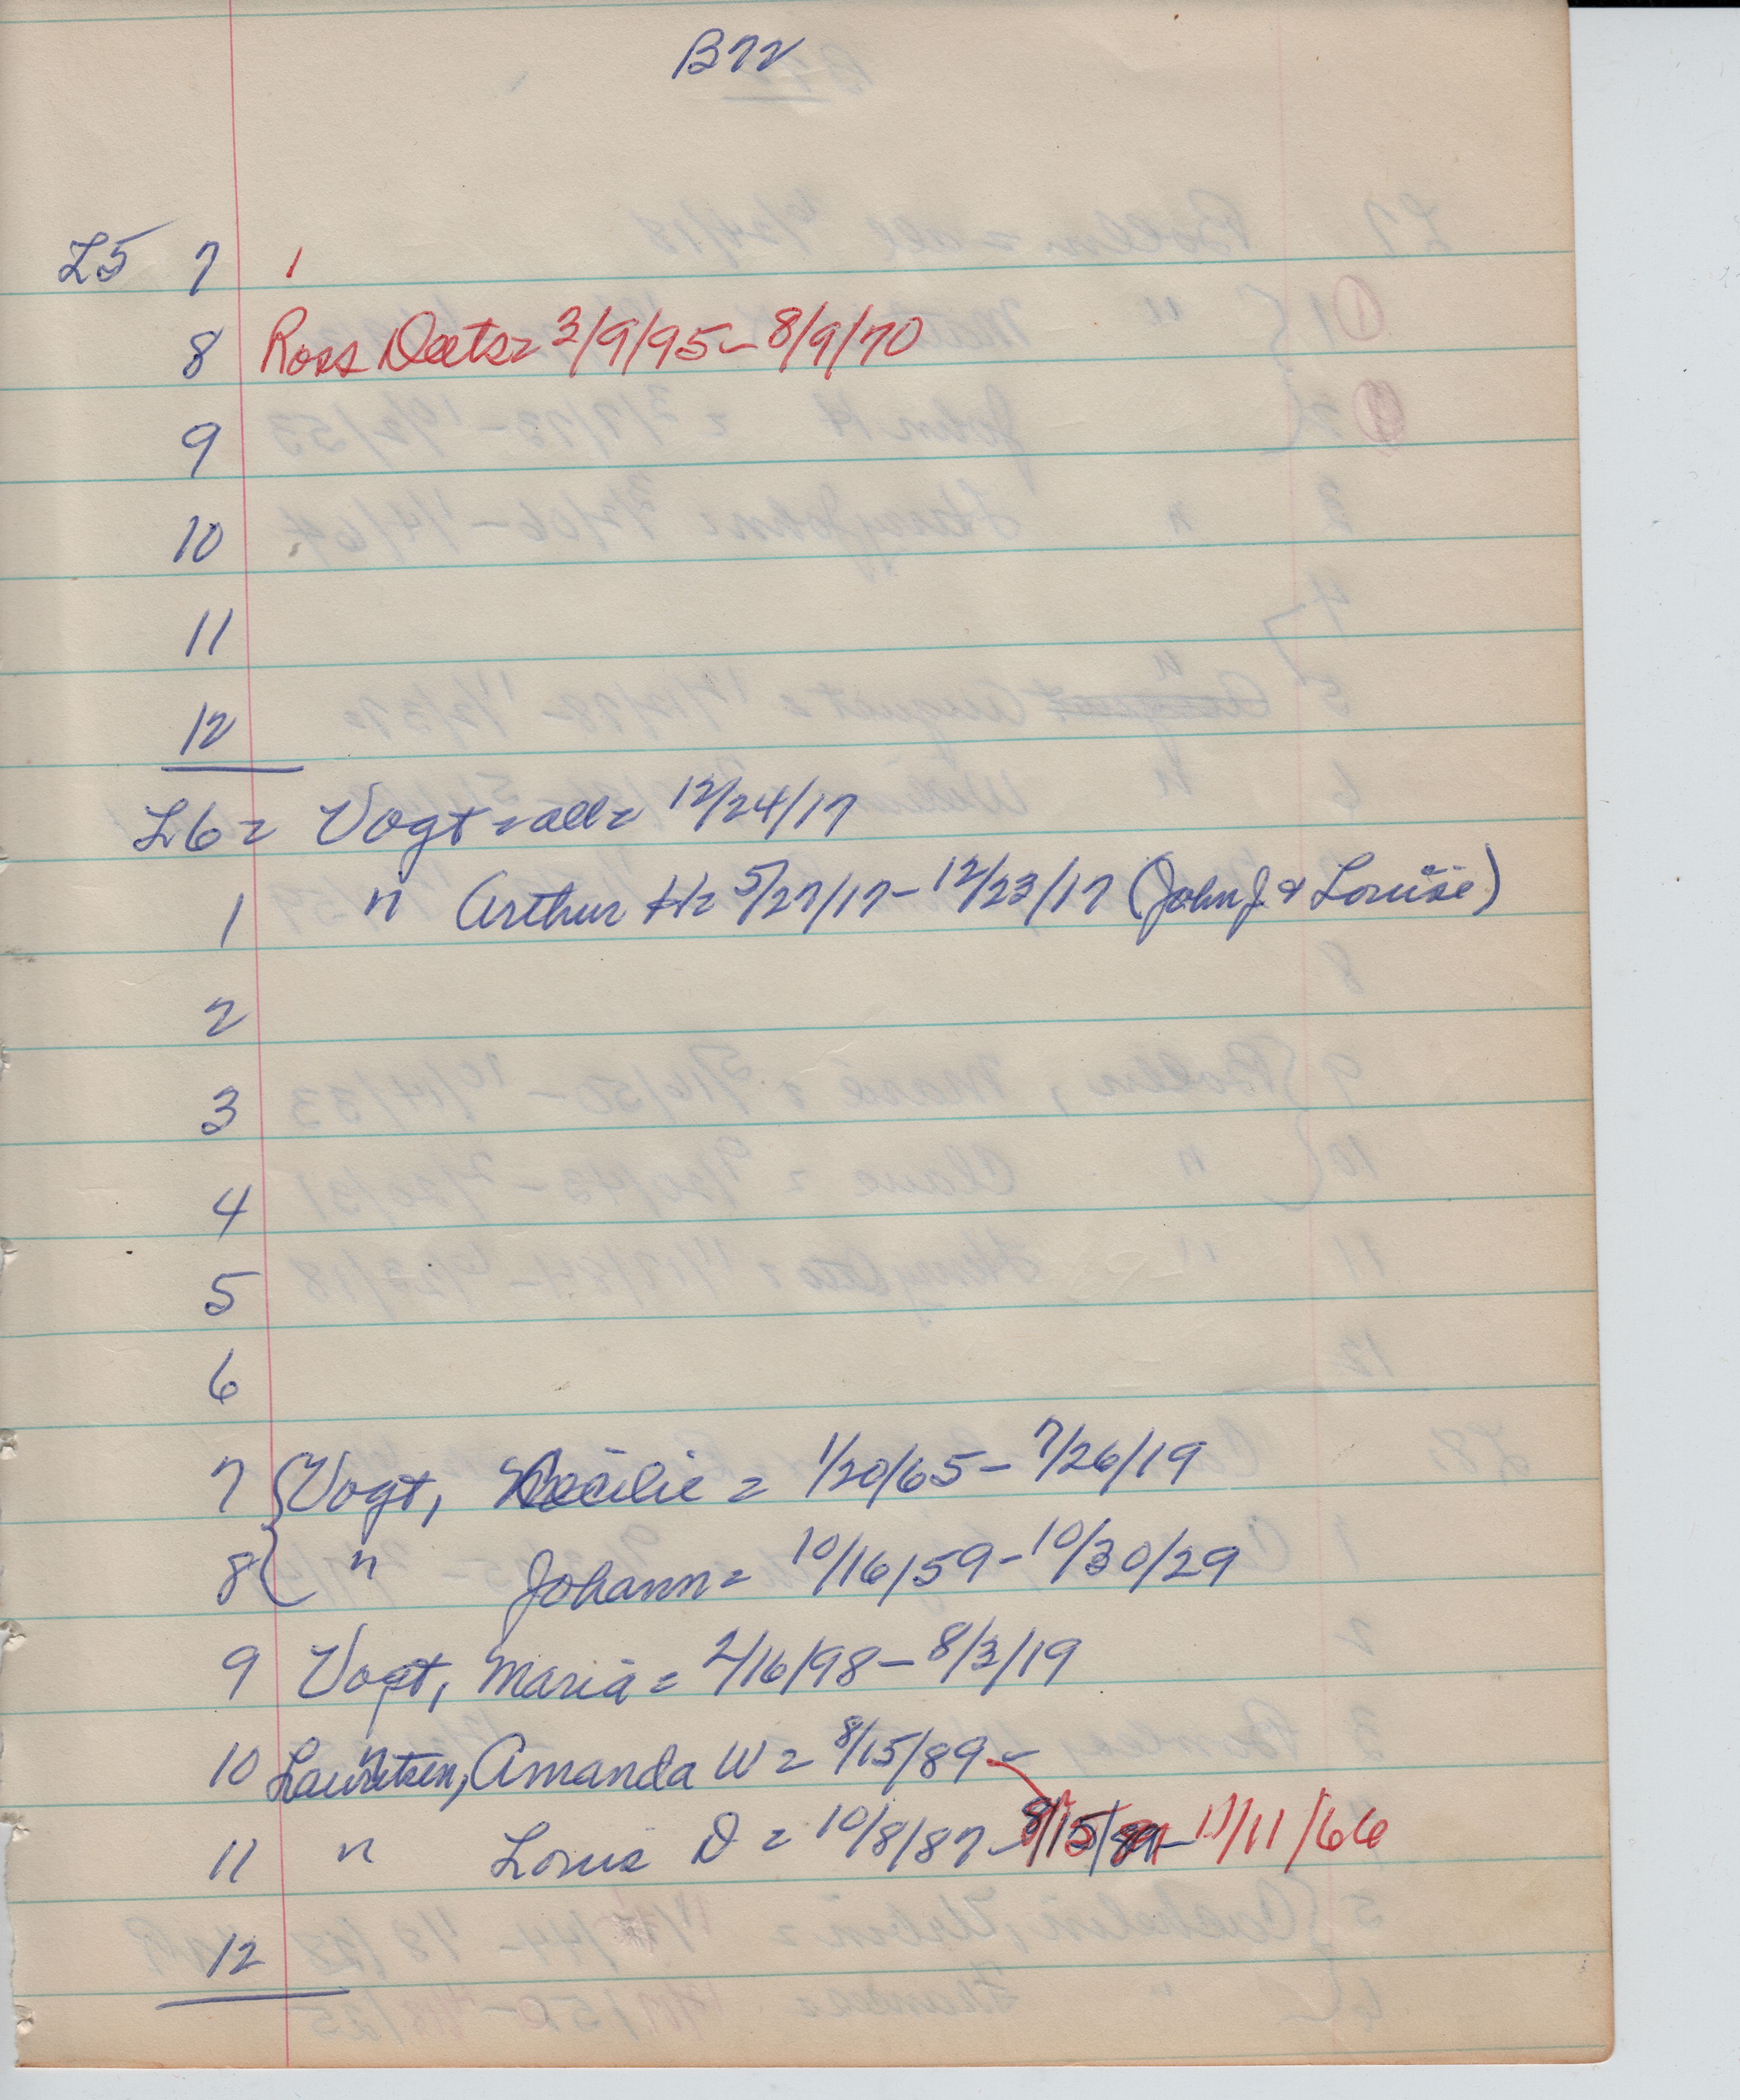 B72
L5 7
8 Ross Deets = 3/9/95 - 8/9/70
9
10
11
12
L6 = Vogt = all = 12/24/17
1 " Arthur H = 5/27/17 - 12/23/17 (John J. & Louise)
2
3
4
5
6
7 { Vogt, Cecilie = 1/20/65 - 7/26/19
8 { " Johann = 10/16/59 - 10/30/29
9 Vogt, Maria = 2/16/98 - 8/3/19
10 Lauritsen, Amanda W = 8/15/89 -
11 " Louis D = 10/8/87 - 11/11/66
12